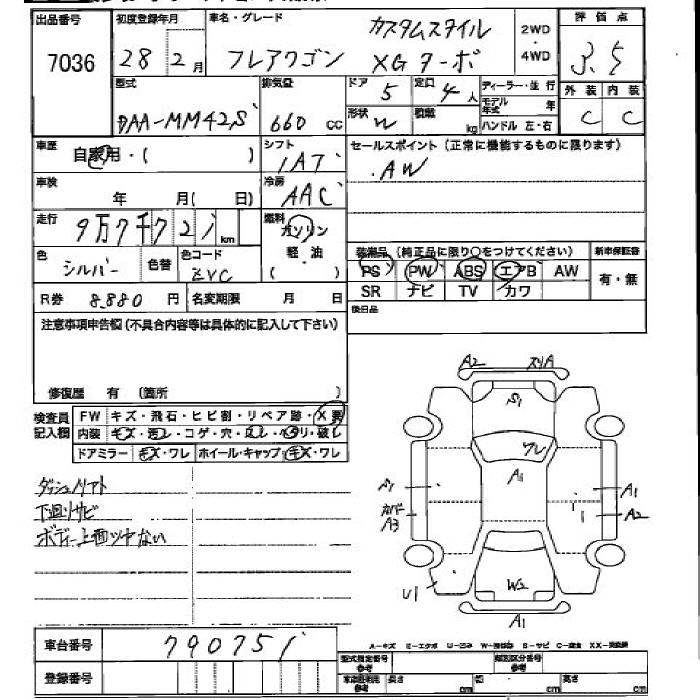 出品番号 初度登録年月 車名・グレード カスタムスタイル 2WD 評価点
7036 28年2月 フレアワゴン XGターボ ・4WD 3.5
型式 排気量 ドア 5 定員 4人 ディーラー・並行 外装 内装
DAA-MM42S 660cc 形状 W 積載 kg モデル年式 年 C C
ハンドル 左・右
車歴 自家用・( ) シフト IAT セールスポイント(正常に機能するものに限ります)
AW
車検 年 月( 日) 冷房 AAC
走行 9万7千721km 燃料 ガソリン
軽油
( )
色 シルバー 色替 色コード ZVC
装備品 (純正品に限り○をつけてください) 新車保証書
PS PW ABS エアB AW 有・無
SR ナビ TV カワ
R券 8,880円 名変期限 月 日
後日品
注意事項申告欄(不具合内容等は具体的に記入して下さい)
修復歴 有 (箇所 )
検査員記入欄 FW キズ・飛石・ヒビ割・リペア跡・X要
内装 キズ・汚レ・コゲ・穴・ハガレ・ヘタリ・破レ
ドアミラー キズ・ワレ ホイール・キャップ キズ・ワレ
下廻りサビ
ボディー上面ツヤない
A2 スリA
S1
ワレ
A1
A1
カバー
A3 A2
U1 W2
A1
車台番号 790751
登録番号
A-キズ E-エクボ U-凹み S-サビ C-腐食
型式指定番号 参考 類別区分番号 参考
長さ cm 幅 cm 高さ cm